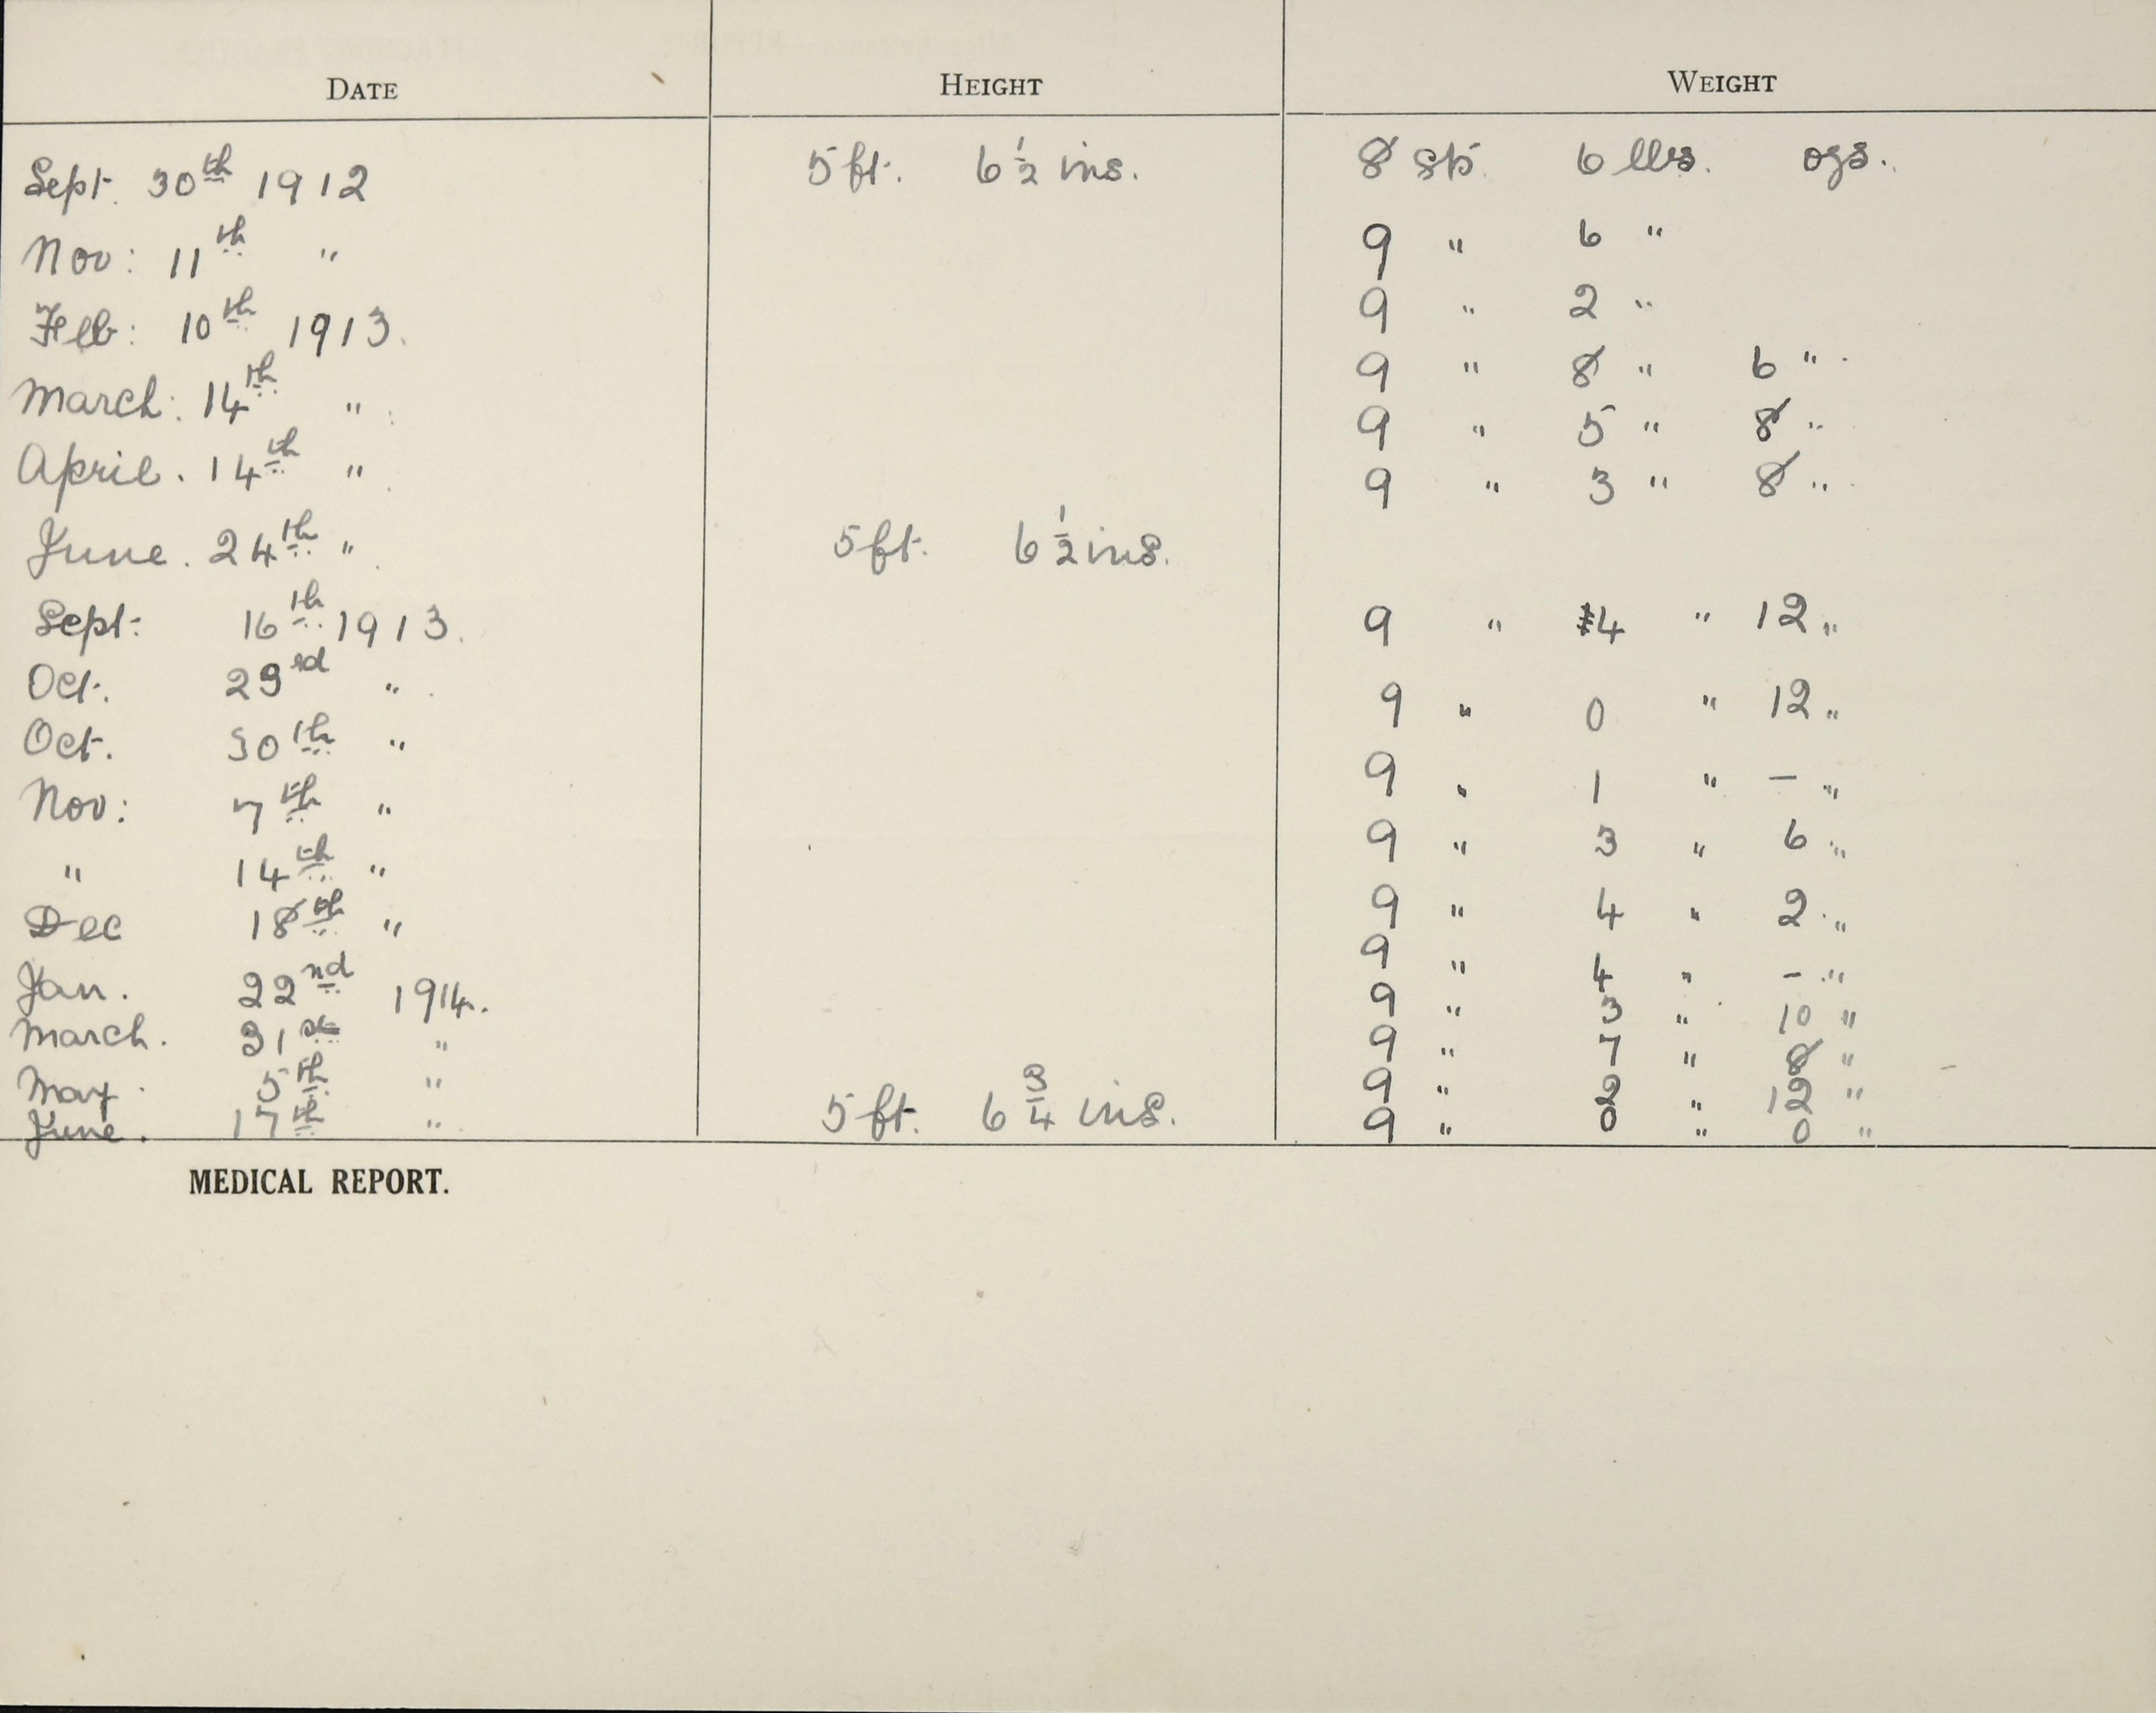 DATE HEIGHT WEIGHT
Sept. 30th 1912 5 ft. 6 1/2 ins. 8 sts. 6 lbs. ozs.
Nov: 11th " 9 " 6 "
Feb: 10th 1913. 9 " 2 "
March: 14th " 9 " 8 " 6 "
April. 14th " 9 " 5 " 8 "
June. 24th " 5 ft. 6 1/2 ins. 9 " 3 " 8 "
Sept: 16th 1913. 9 " 4 " 12 "
Oct. 23rd " 9 " 0 " 12 "
Oct. 30th " 9 " 1 " – "
Nov: 7th " 9 " 3 " 6 "
" 14th " 9 " 4 " 2 "
Dec 18th " 9 " 4 " – "
Jan. 22nd 1914. 9 " 3 " 10 "
March. 31st " 9 " 7 " 8 "
May. 5th " 9 " 2 " 12 "
June. 17th " 5 ft. 6 3/4 ins. 9 " 0 " 0 "
MEDICAL REPORT.